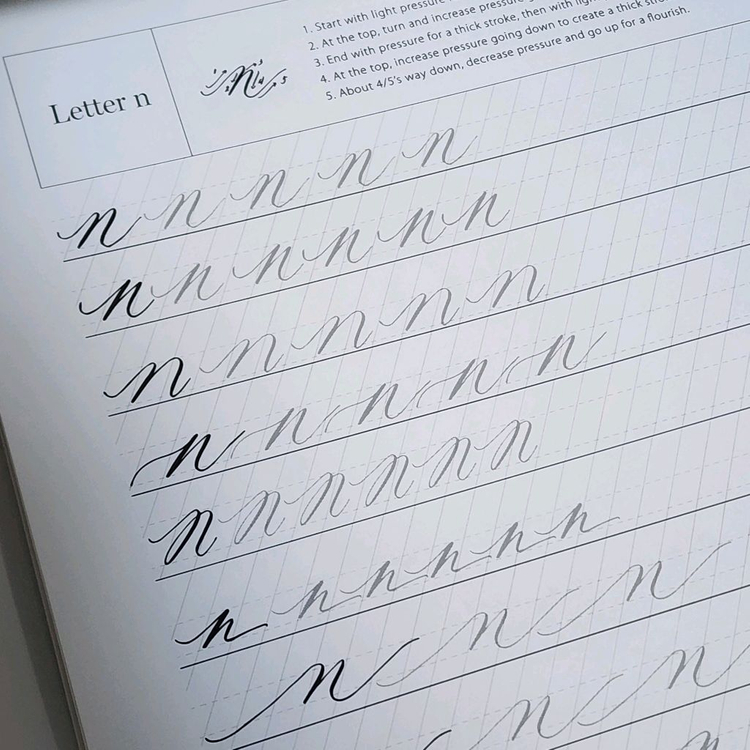 Letter n
1. Start with light pressure
2. At the top, turn and increase pressure
3. End with pressure for a thick stroke, then with
4. At the top, increase pressure going down to create a thick
5. About 4/5's way down, decrease pressure and go up for a flourish.
n n n n n
n n n n n n
n n n n n
n n n n n
n n n n n n
n n n n n n
n n n
n n